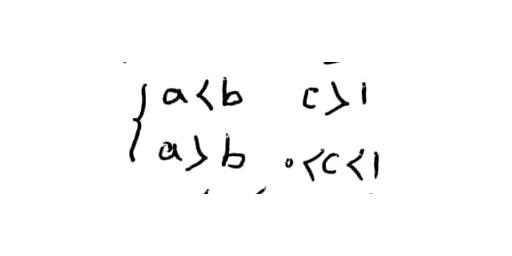 { a<b c>1
a>b 0<c<1